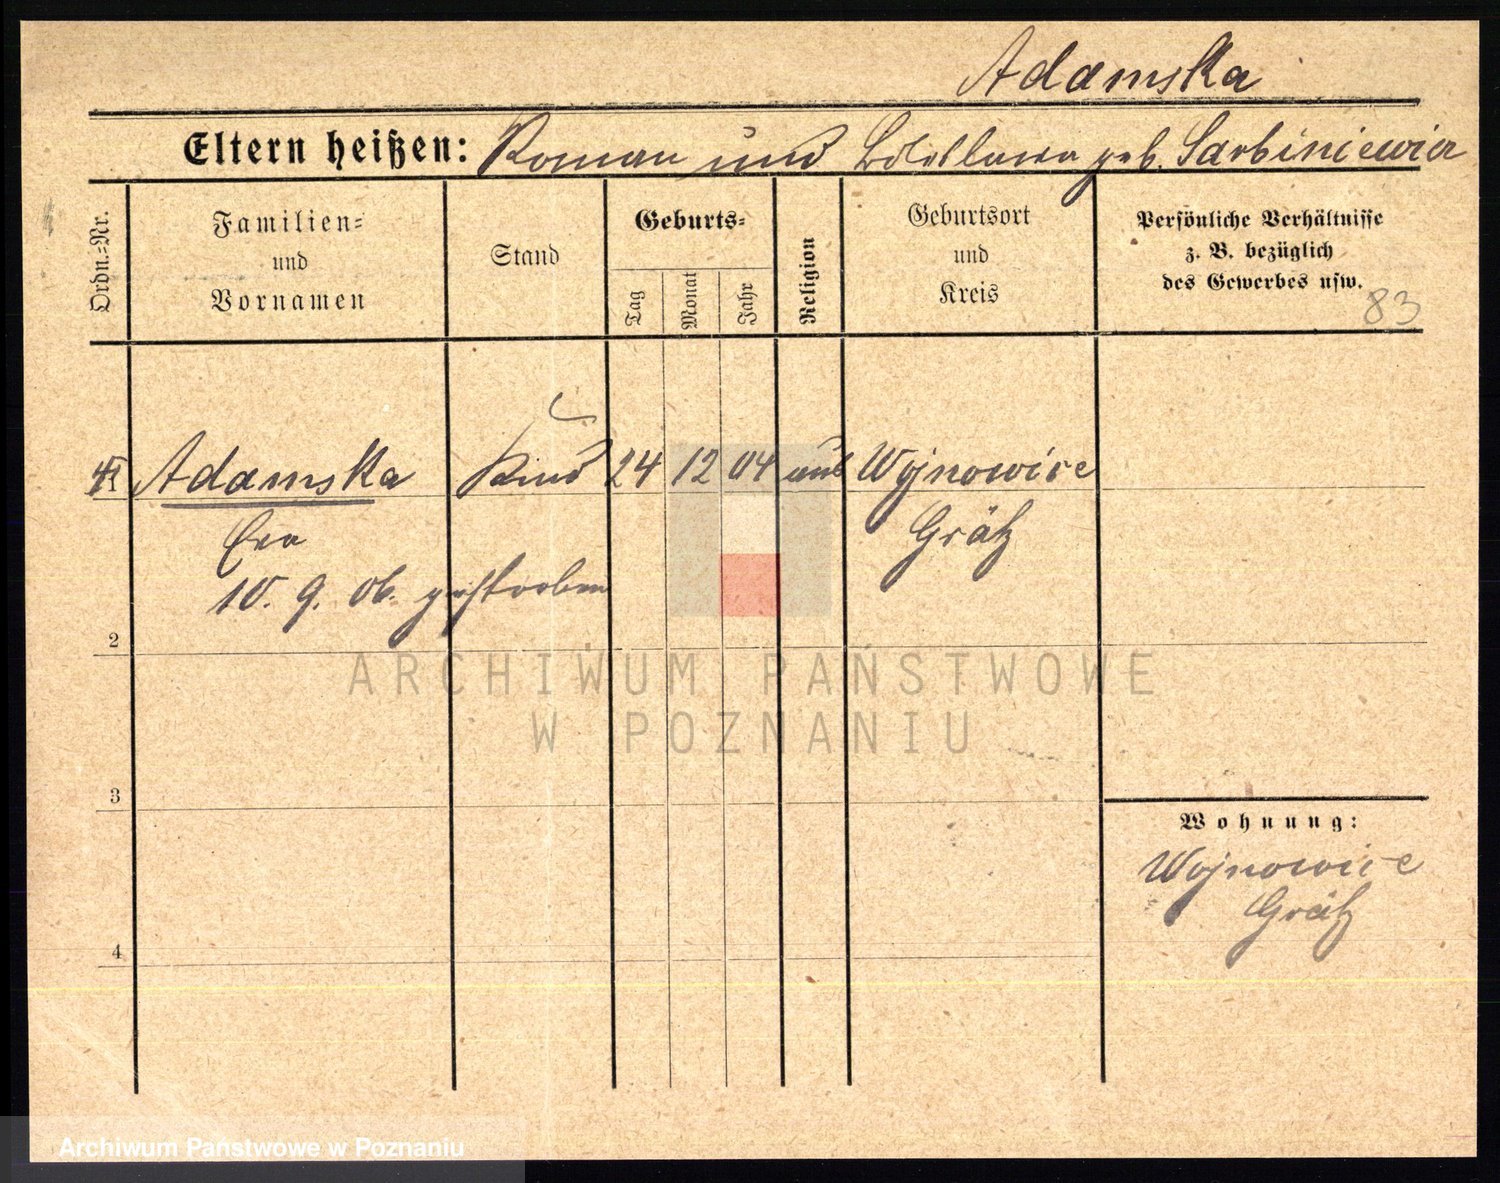 Adamska
Eltern heißen: Roman und Boleslawa geb. Sarbiniewicz
Ordn.-Nr.
Familien-
und
Vornamen
Stand
Geburts-
Tag
Monat
Jahr
Religion
Geburtsort
und
Kreis
Persönliche Verhältnisse
z. B. bezüglich
des Gewerbes usw.
83
Adamska Kind 24 12 04 Wojnowice
Eva Grätz
10. 9. 06. gestorben
2
ARCHIWUM PAŃSTWOWE
W POZNANIU
3
Wohnung:
Wojnowice
Grätz
4
Archiwum Państwowe w Poznaniu